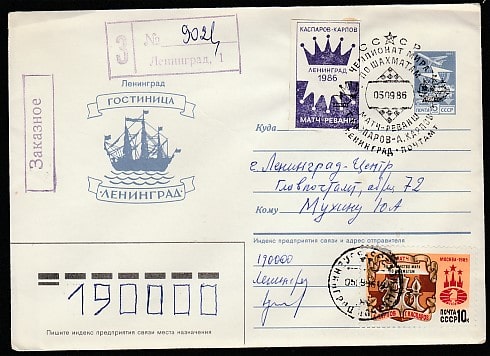 З № 9021
Ленинград, 1
Заказное
Ленинград
ГОСТИНИЦА
"ЛЕНИНГРАД"
КАСПАРОВ-КАРПОВ
ЛЕНИНГРАД
1986
МАТЧ-РЕВАНШ
СССР
ЧЕМПИОНАТ МИРА
ПО ШАХМАТАМ
05 09 86
МАТЧ-РЕВАНШ
КАСПАРОВ-А.КАРПОВ
ЛЕНИНГРАД • ПОЧТАМТ
ПОЧТА СССР
Куда
г. Ленинград-Центр
Главпочтамт, абон 72
Кому Мухину Ю А
Индекс предприятия связи и адрес отправителя
190000
Ленинград
МАТЧ
МОСКВА-1985
КАРПОВ КАСПАРОВ
ПОЧТА
СССР 10к
190000
Пишите индекс предприятия связи места назначения